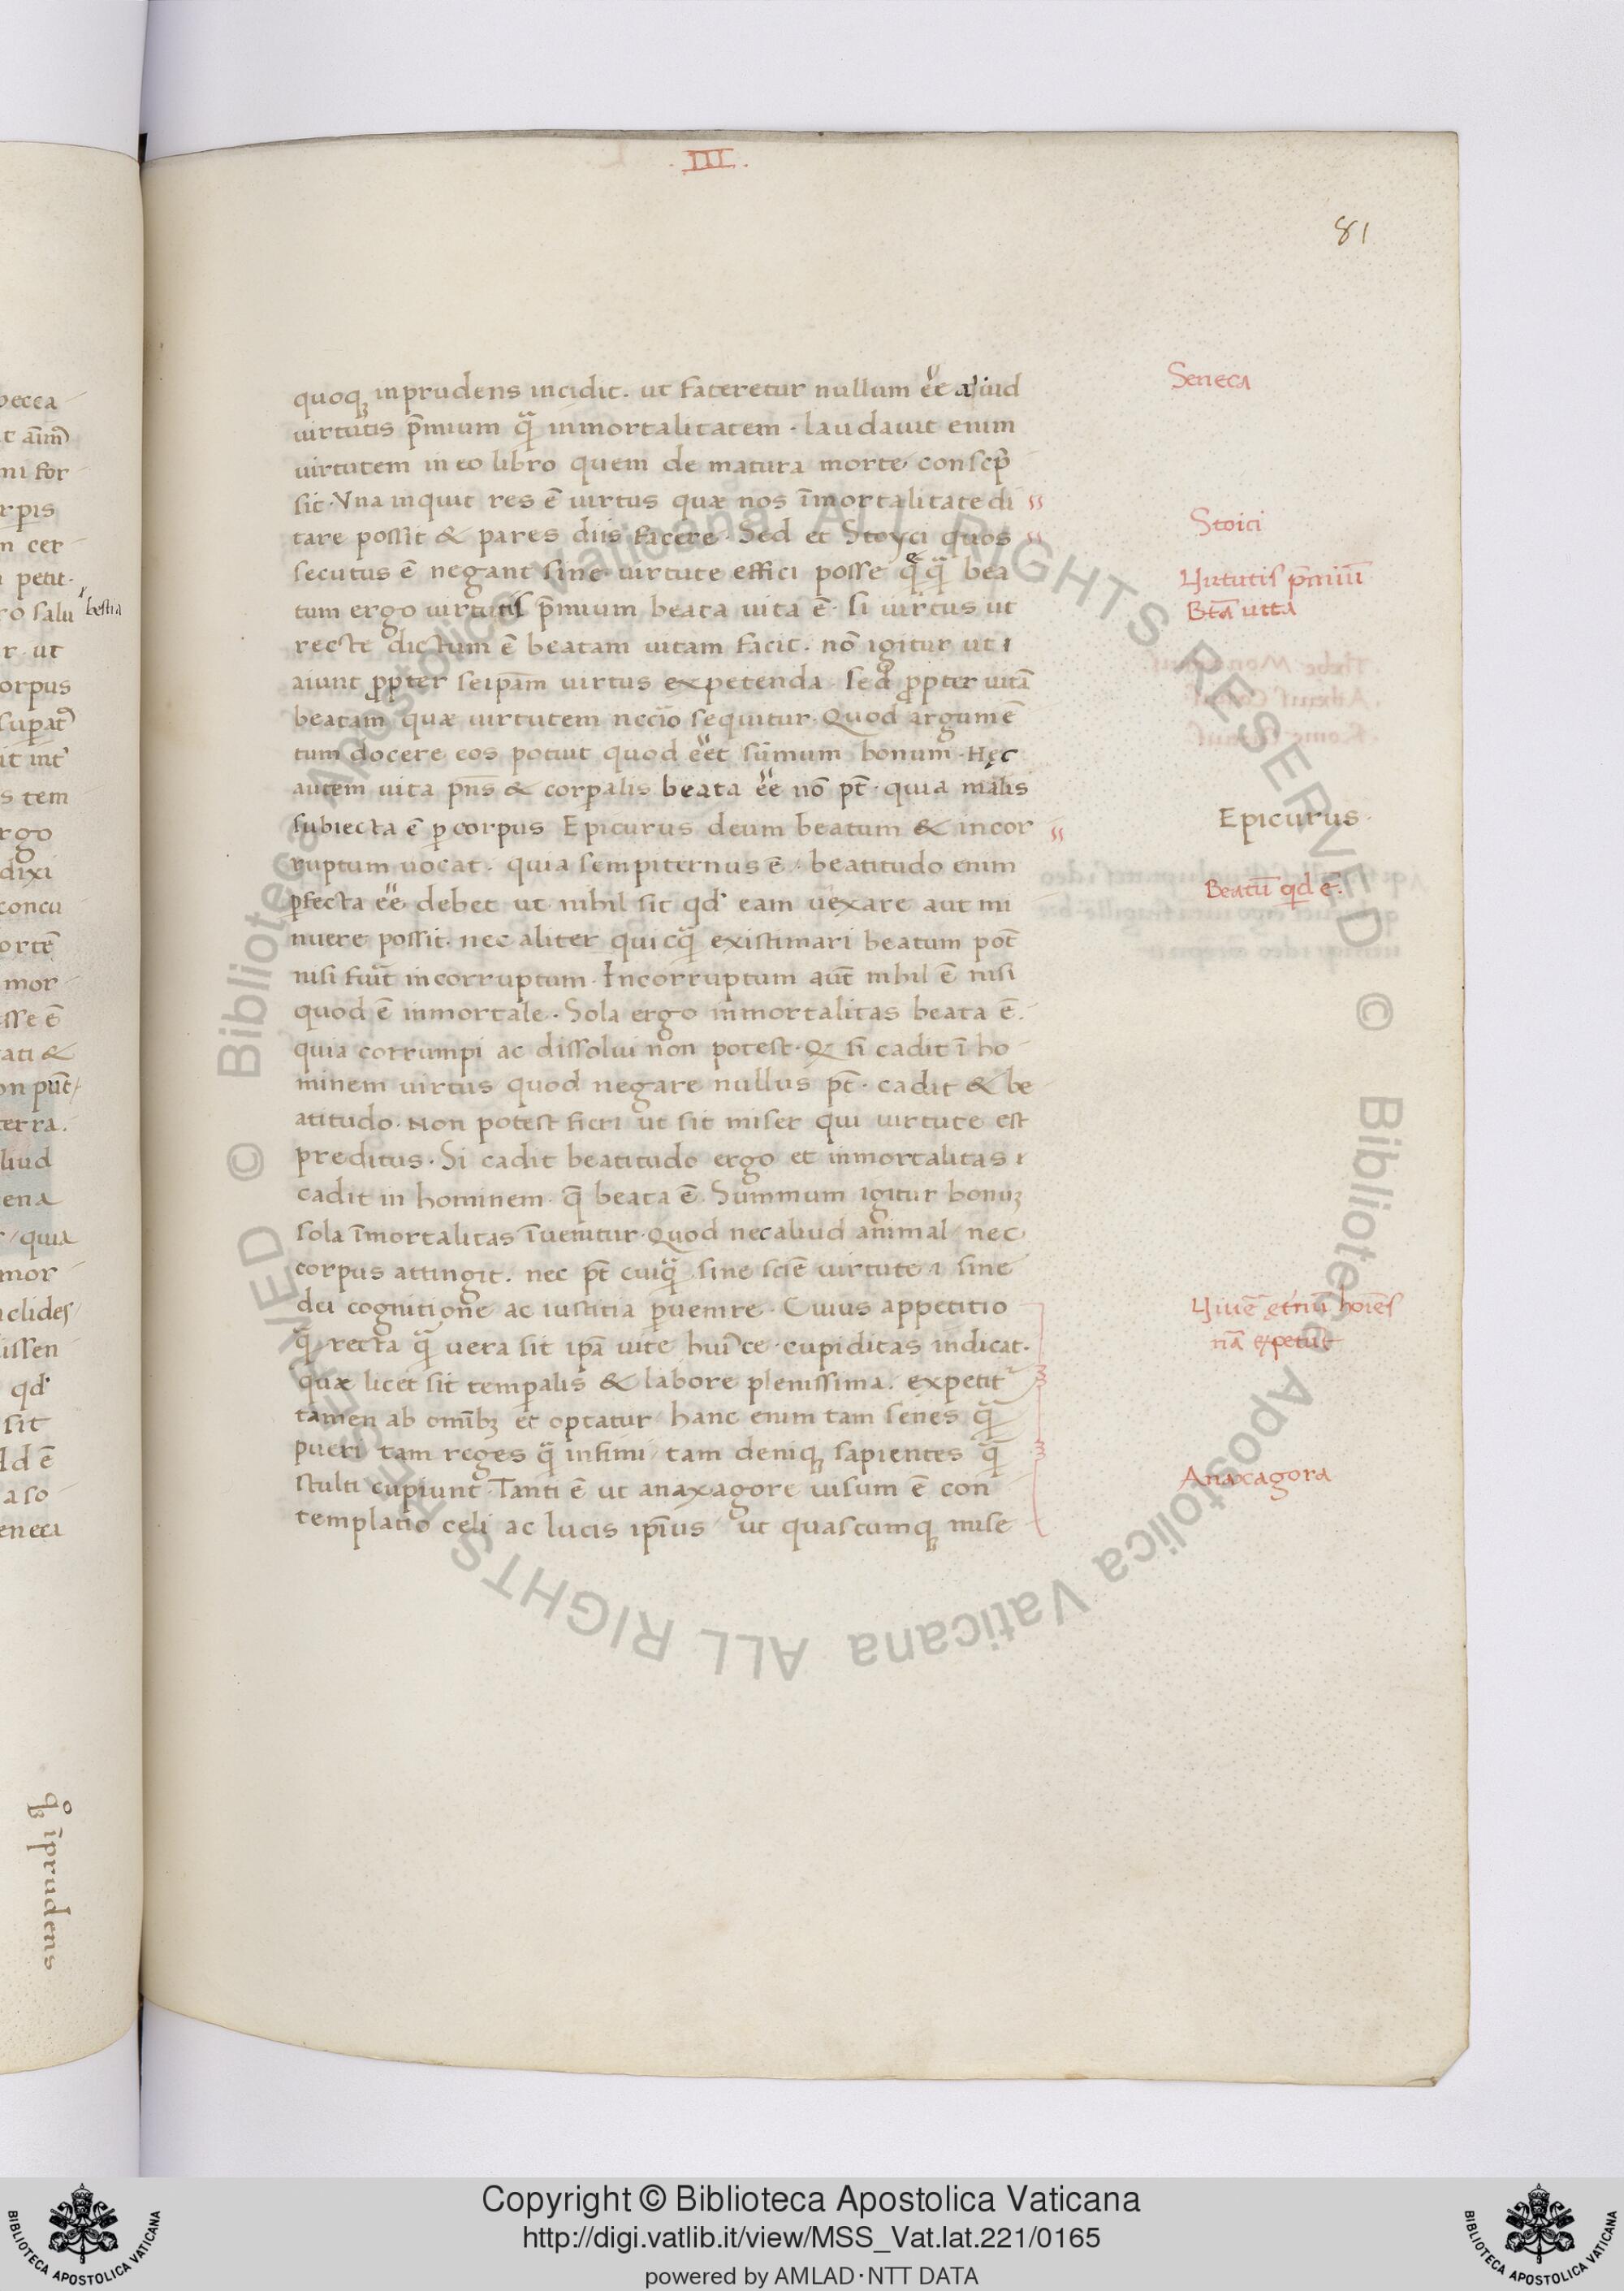 .III.
81
quoq; inprudens incidit. ut fateretur nullum ee͂ aliud
uirtutis p̄mium q̄ inmortalitatem. laudauit enim
uirtutem in eo libro quem de matura morte conscp̄
sit. Vna inquit res ē uirtus quæ nos īmortalitate di
tare possit & pares diis facere. Sed et Stoyci quos
secutus ē negant sine uirtute effici posse bea
tum ergo uirtutis p̄mium beata uita ē. si uirtus ut
recte dictum ē beatam uitam facit. nō igitur ut
aiunt ꝓpter seip̄am uirtus expetenda. sed ꝓpter uitā
beatam quæ uirtutem nec̄io sequitur. Quod argumē
tum docere eos potiut quod ee͂t sūmum bonum. Hęc
autem uita pn̄s & corꝑalis beata ee͂ nō pt̄. quia malis
subiecta ē ꝑ corpus Epicurus deum beatum & incor
ruptum uocat. quia sempiternus ē. beatitudo enim
ꝑfecta ee͂ debet ut nihil sit qd' eam uexare aut mi
nuere possit. nec aliter quicq̄ existimari beatum pot̄
nisi fuit̄ incorruptum. Incorruptum aut̄ nihil ē nisi
quod ē inmortale. Sola ergo inmortalitas beata ē.
quia corrumpi ac dissolui non potest. Q si cadit ī ho
minem uirtus quod negare nullus pt̄. cadit & be
atitudo. Non potest fieri ut sit miser qui uirtute est
preditus. Si cadit beatitudo ergo et inmortalitas
cadit in hominem. q̄ beata ē. Summum igitur bonuȝ
sola īmortalitas īuenitur. Quod nec aliud animal nec
corpus attingit. nec pt̄ cuiq̄ sine scīe uirtute sine
dei cognitione ac iustitia ꝑuenire. Cuius appetitio
q̄ recta q̄ uera sit ip̄a uite huīce cupiditas indicat.
quæ licet sit temꝑalis & labore plenissima. expetit'
tamen ab omībȝ et optatur hanc enim tam senes q̄
pueri tam reges q̄ infimi tam deniq; sapientes q̄
stulti cupiunt. Tanti ē ut anaxagore uisum ē con
templatio celi ac lucis ip̄ius ut quascumq; mise
Seneca
Stoici
Uirtutis p̄miū
Bt̄a uita
Epicurus.
Beatū qd ē.
Anaxagora
becca
t aīm̄
mi for
rꝑis
m cer
petit.
ro salu bestia
r ut
orpus
suꝑat'
it int'
s tem
rgo
dixi
concu
ortē
mor
sse ē
ati &
on pūt
terra.
liud
ena
quia
mor
clides
issen
qd'
sit
ld ē
a so
eneci
īprudens
© Biblioteca Apostolica Vaticana ALL RIGHTS RESERVED © Biblioteca Apostolica Vaticana ALL RIGHTS RESERVED
Copyright © Biblioteca Apostolica Vaticana
http://digi.vatlib.it/view/MSS_Vat.lat.221/0165
powered by AMLAD·NTT DATA
BIBLIOTECA APOSTOLICA VATICANA
BIBLIOTECA APOSTOLICA VATICANA